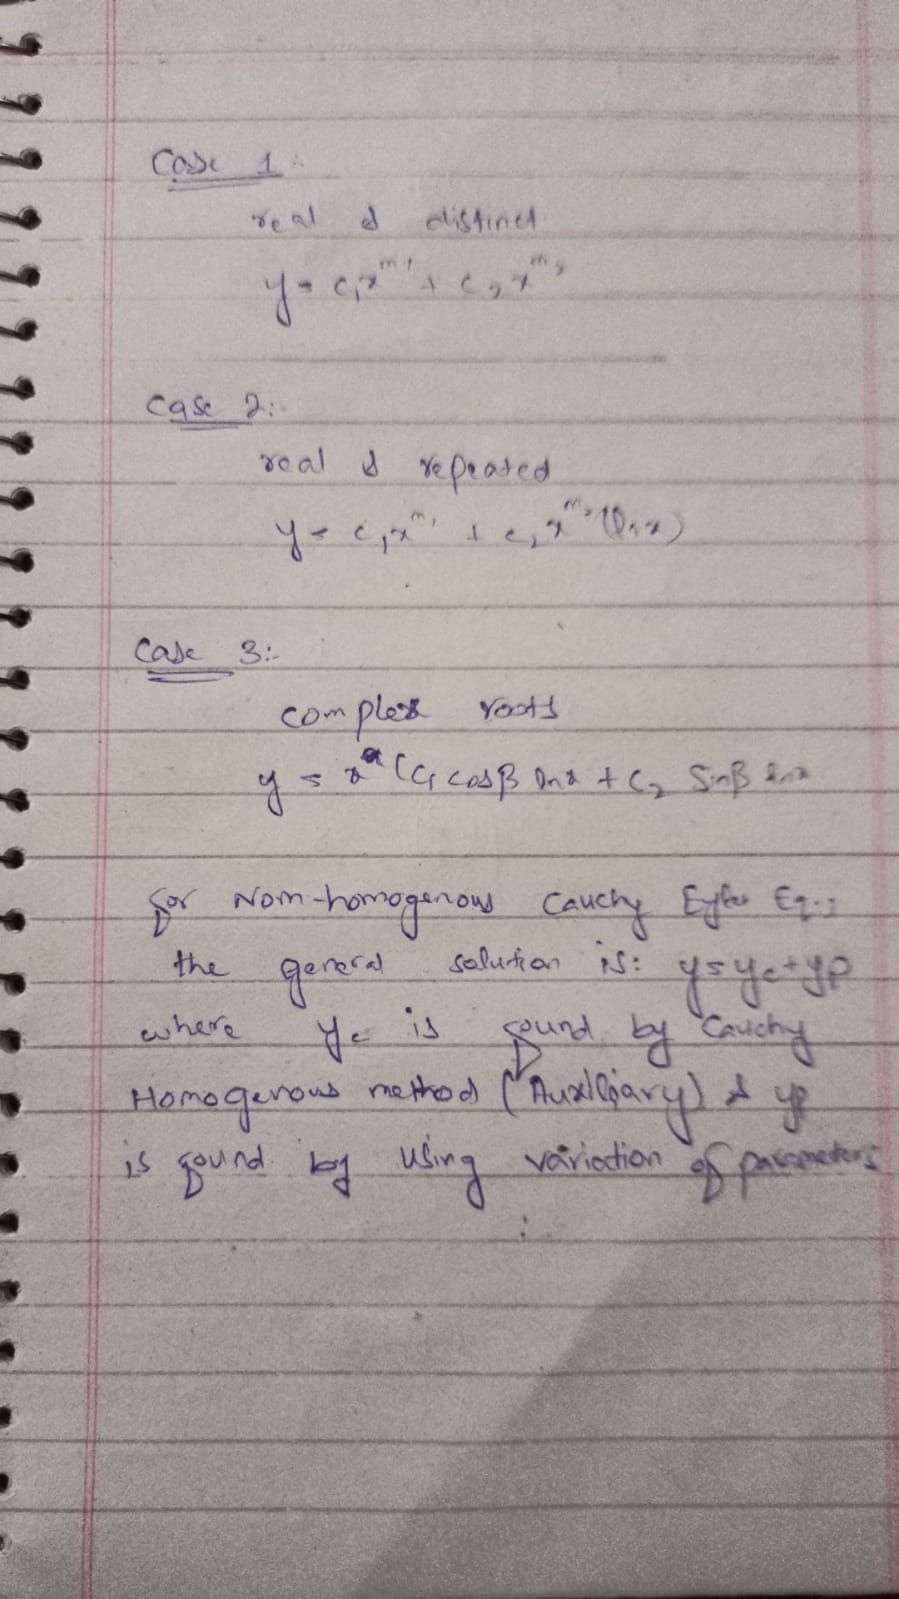 Case 1:
real & distinct
y = c₁x^m₁ + c₂x^m₂
Case 2:-
real & repeated
y = c₁x^m₁ + c₂x^m₂ (lnx)
Case 3:-
complex roots
y = x^α (c₁ cosβ lnx + c₂ Sinβ lnx
for Nom-homogenous Cauchy Eq.:
the general solution is: y=yc+yp
where yc is found by Cauchy
Homogenous method (Auxiliary) & yp
is found by using variation of parameters